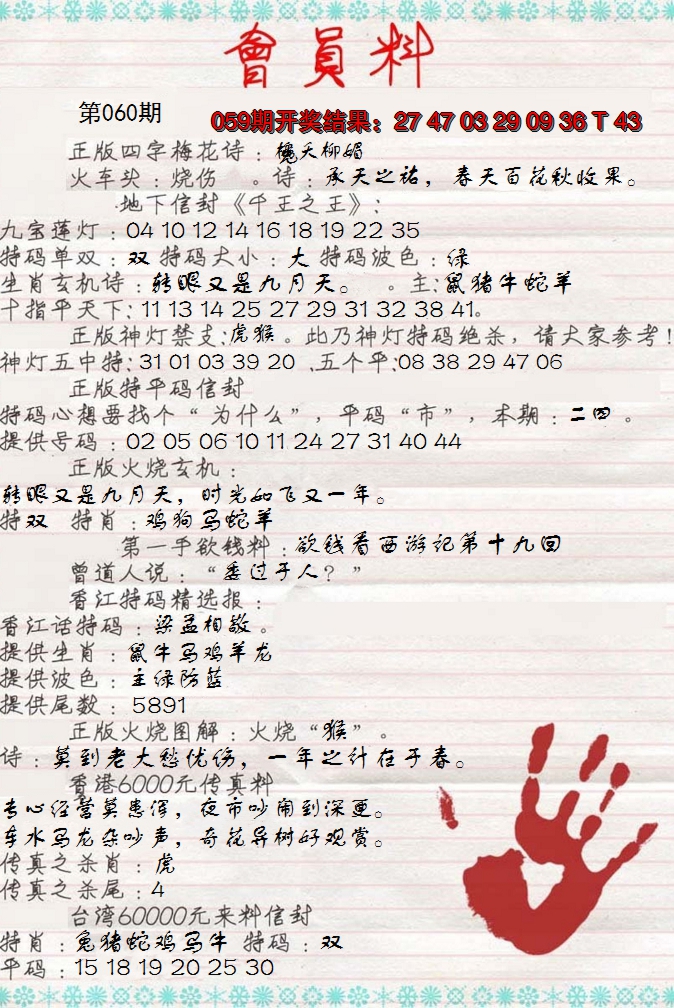 會員料
第060期
059期开奖结果：27 47 03 29 09 36 T 43
正版四字梅花诗：櫕夭柳媚
火车头：烧伤 。诗：承天之祐，春天百花秋收果。
·地下信封《千王之王》：
九宝莲灯：04 10 12 14 16 18 19 22 35
特码单双：双 特码大小：大 特码波色：绿
生肖玄机诗：转眼又是九月天。 。主：鼠猪牛蛇羊
十指平天下：11 13 14 25 27 29 31 32 38 41。
正版神灯禁支：虎猴。此乃神灯特码绝杀，请大家参考！
神灯五中特：31 01 03 39 20 、五个平：08 38 29 47 06
正版特平码信封
特码心想要找个“为什么”，平码“市”，本期：二四。
提供号码：02 05 06 10 11 24 27 31 40 44
正版火烧玄机：
转眼又是九月天，时光如飞又一年。
特双 特肖：鸡狗马蛇羊
第一手欲钱料：欲钱看西游记第十九回
曾道人说：“委过于人？”
香江特码精选报：
香江话特码：梁孟相敬。
提供生肖：鼠牛马鸡羊龙
提供波色：主绿防蓝
提供尾数：5891
正版火烧图解：火烧“猴”。
诗：莫到老大愁忧伤，一年之计在于春。
香港6000元传真料
专心经营莫愚浑，夜市吵闹到深更。
车水马龙杂吵声，奇花异树好观赏。
传真之杀肖：虎
传真之杀尾：4
台湾60000元来料信封
特肖：兔猪蛇鸡马牛 特码：双
平码：15 18 19 20 25 30